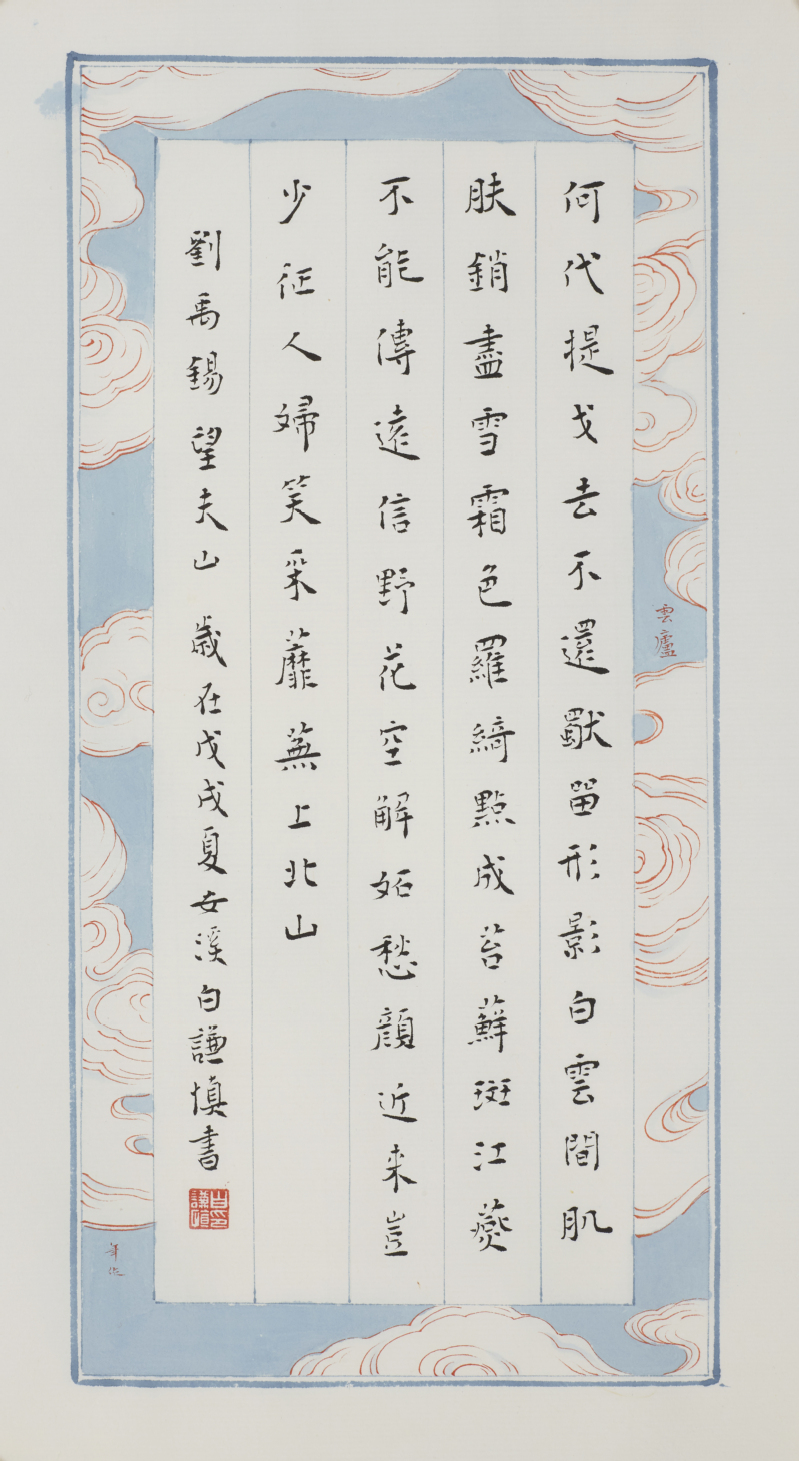 何代提戈去不還獨留形影白雲間肌
膚銷盡雪霜色羅綺點成苔蘚斑江燕
不能傳遠信野花空解妬愁顏近来豈
少征人婦笑采蘼蕪上北山
劉禹錫望夫山 歲在戊戌夏女溪白謙慎書
白謙慎印
雲廬